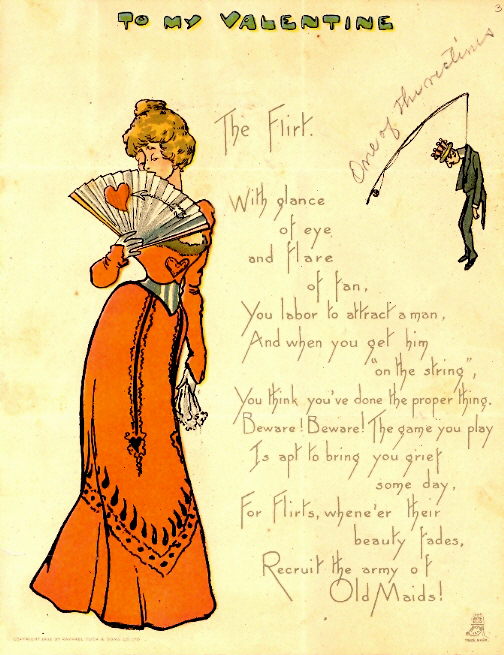 TO MY VALENTINE
3
One of the victims
The Flirt.
With glance
of eye
and flare
of fan,
You labor to attract a man,
And when you get him
"on the string",
You think you've done the proper thing.
Beware! Beware! The game you play
Is apt to bring you grief
some day,
For Flirts, whene'er their
beauty fades,
Recruit the army of
Old Maids!
COPYRIGHT
BY RAPHAEL TUCK & SONS CO LTD
TRADE MARK